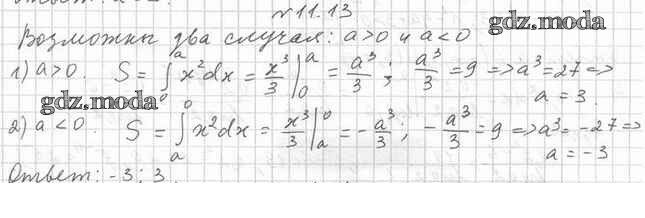 №11.13
gdz.moda
Возможны два случая: a>0 и a<0
1) a>0. S = ∫₀ᵃ x²dx = x³/3 |₀ᵃ = a³/3; a³/3 = 9 => a³ = 27 =>
gdz.moda
a = 3.
gdz.moda
2) a<0. S = ∫ₐ⁰ x²dx = x³/3 |ₐ⁰ = -a³/3; -a³/3 = 9 => a³ = -27 =>
a = -3
Ответ: -3; 3.